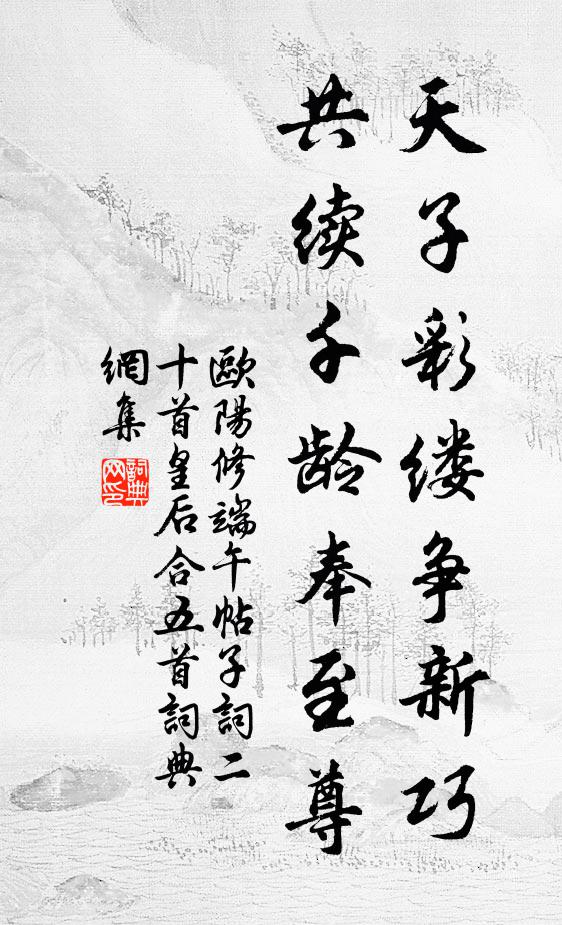 天子彩缕争新巧
共续千龄奉至尊
歐陽修端午帖子詞二
十首皇后合五首詞典
網集
詞典
网印